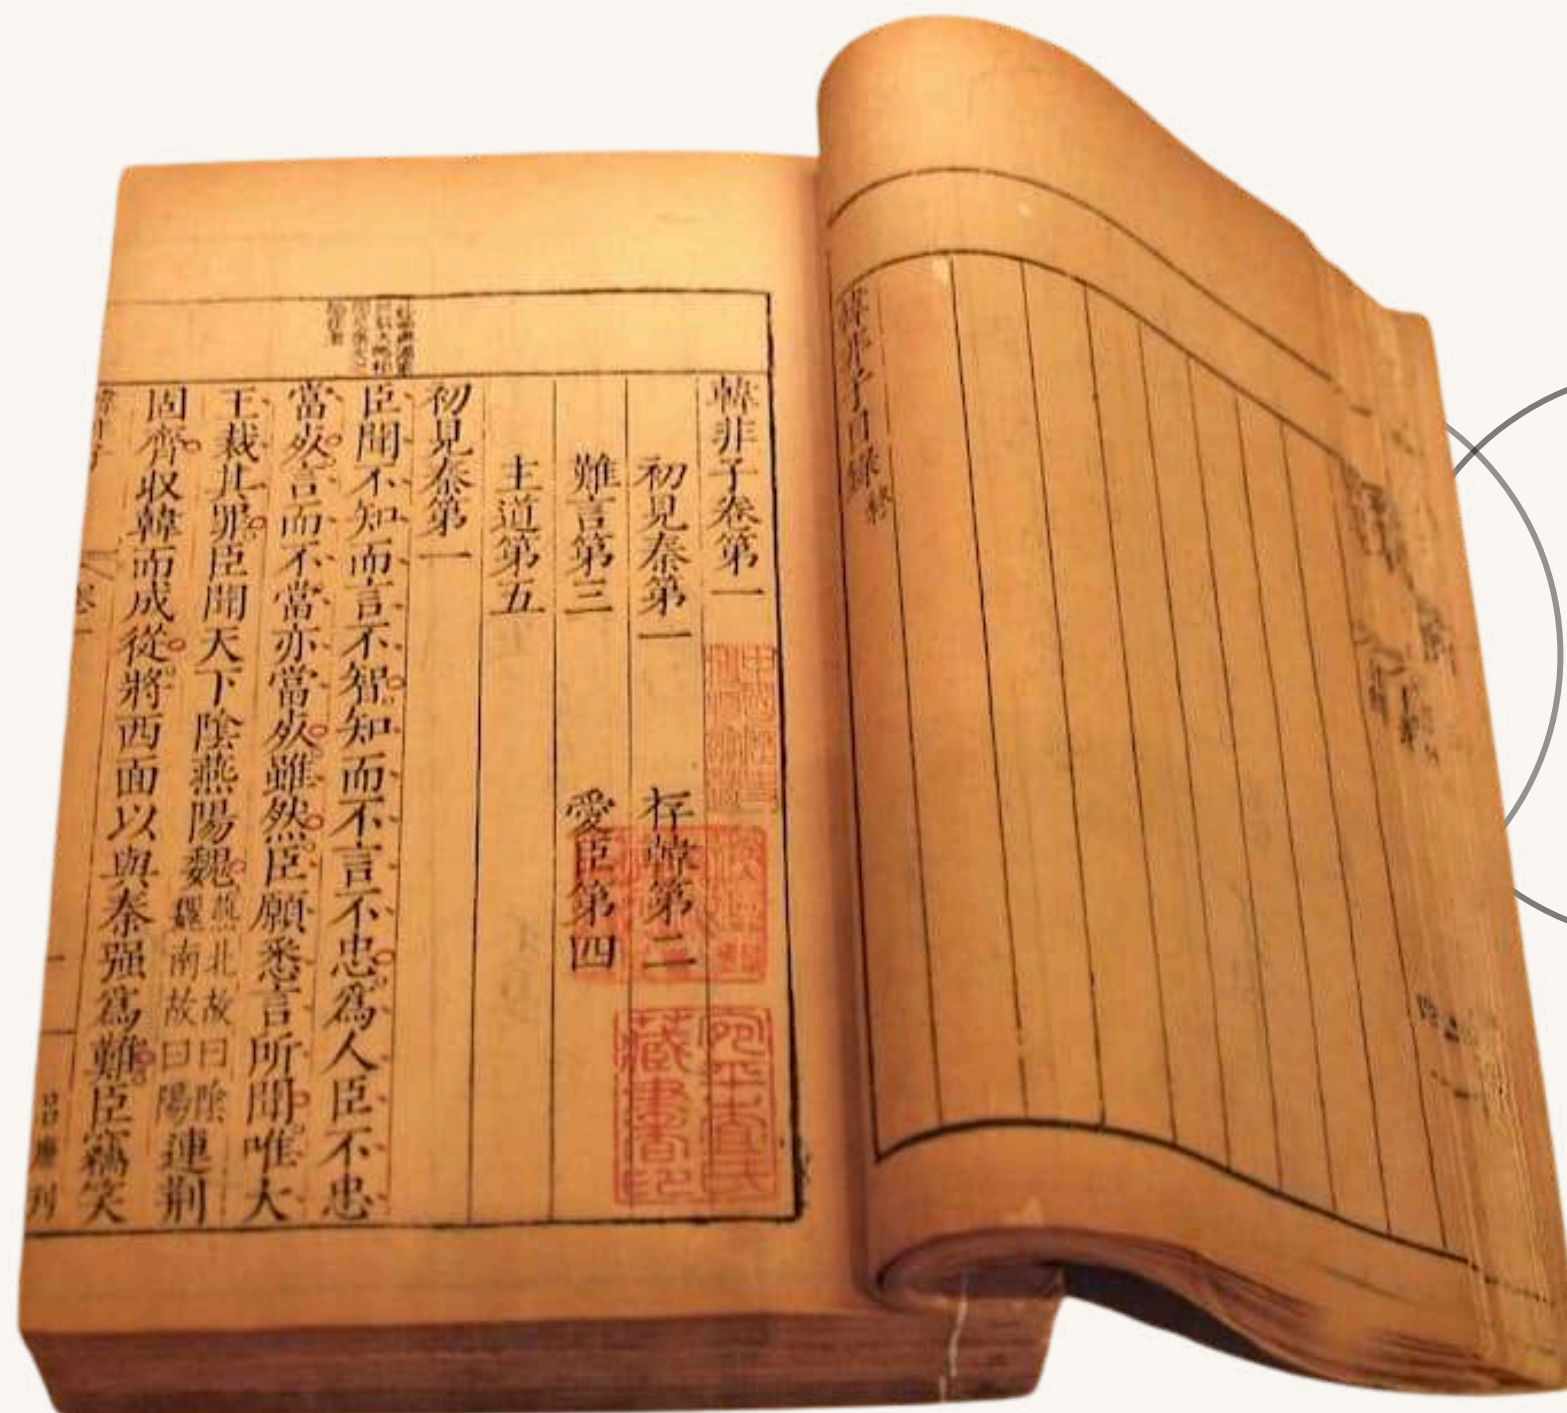 韓非子目錄終
韓非子卷第一
初見秦第一　存韓第二
難言第三　愛臣第四
主道第五
初見秦第一
臣聞不知而言不智知而不言不忠爲人臣不忠
當死言而不當亦當死雖然臣願悉言所聞唯大
王裁其罪臣聞天下陰燕陽魏燕北故曰陰魏南故曰陽連荆
固齊収韓而成從將西面以與秦强爲難臣竊笑
宛平查氏
藏書印